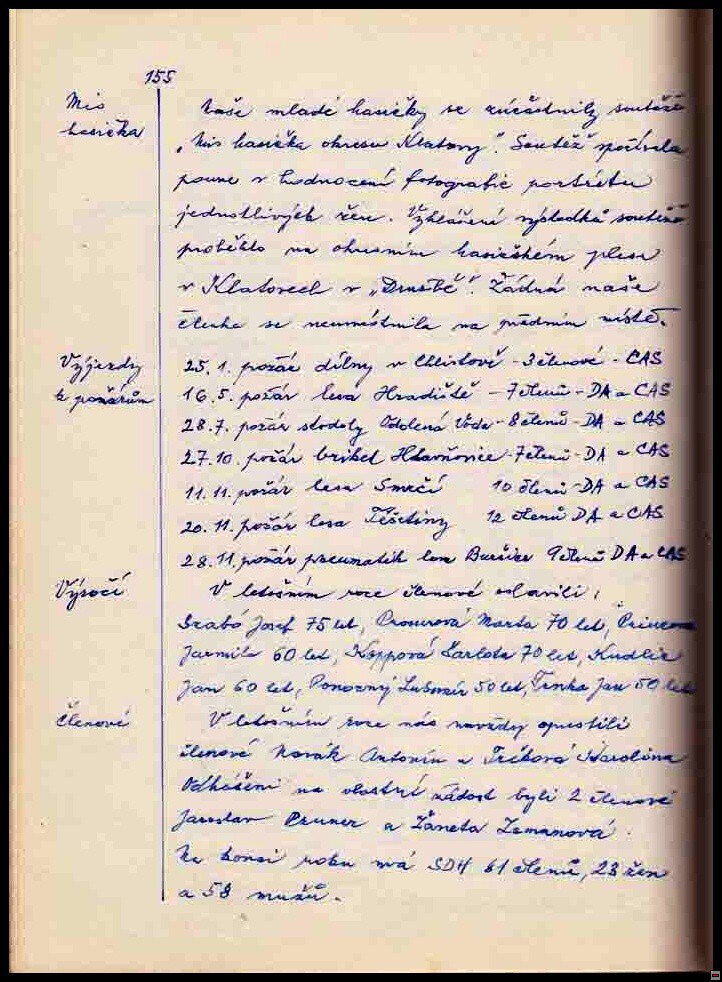 155
Mis
hasička
Naše mladé hasičky se zúčastnily soutěže
„Mis hasička okresu Klatovy“. Soutěž spočívala
pouze v hodnocení fotografie portrétu
jednotlivých žen. Vyhlášení výsledků soutěže
proběhlo na okresním hasičském plese
v Klatovech v „Družbě“. Žádná naše
členka se neumístnila na předním místě.
Výjezdy
k požárům
25. 1. požár dílny v Chlistově - 3 členové - CAS
16. 5. požár lesa Hradiště - 7 členů - DA a CAS
28. 7. požár stodoly Voda - 8 členů - DA a CAS
27. 10. požár briket Hlavňovice - 7 členů - DA a CAS
11. 11. požár lesa Smrčí 10 členů - DA a CAS
20. 11. požár lesa Těšetiny 12 členů DA a CAS
28. 11. požár pneumatik les Buršice 9 členů DA a CAS
Výročí
V letošním roce členové oslavili:
Szabó Josef 75 let, Marta 70 let,
Jarmila 60 let, Koppová Šarlota 70 let, Kudlič
Jan 60 let, Ponozný Lubomír 50 let, Trnka Jan 50 let
Členové
V letošním roce nás navždy opustili
členové Novák Antonín a Karolína
Odhlášeni na vlastní žádost byli 2 členové
Jaroslav Pruner a Žaneta Zemanová.
Na konci roku má SDH 81 členů, 23 žen
a 58 mužů.